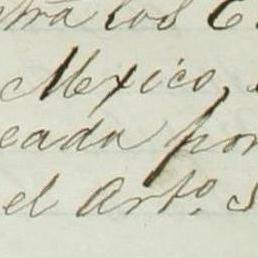 ntra los E
Mexico,
eada por
el Arto. S